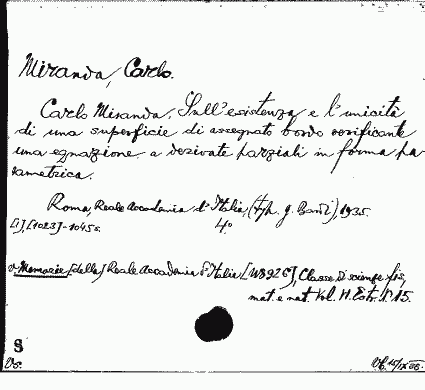 Miranda, Carlo.
Carlo Miranda, Sull'esistenza e l'unicità
di una superficie di assegnato bordo verificante
una equazione a derivate parziali in forma pa
rametrica.
Roma, Reale Accademia d'Italia, (Tip. g. Bardi), 1935.
[1], [1023]-1045 s. 4º
v. Memorie [della] Reale Accademia d'Italia [W8926], Classe di scienze fis,
mat. e nat. Vol. VI. Estr. N. 15.
S
Vs.